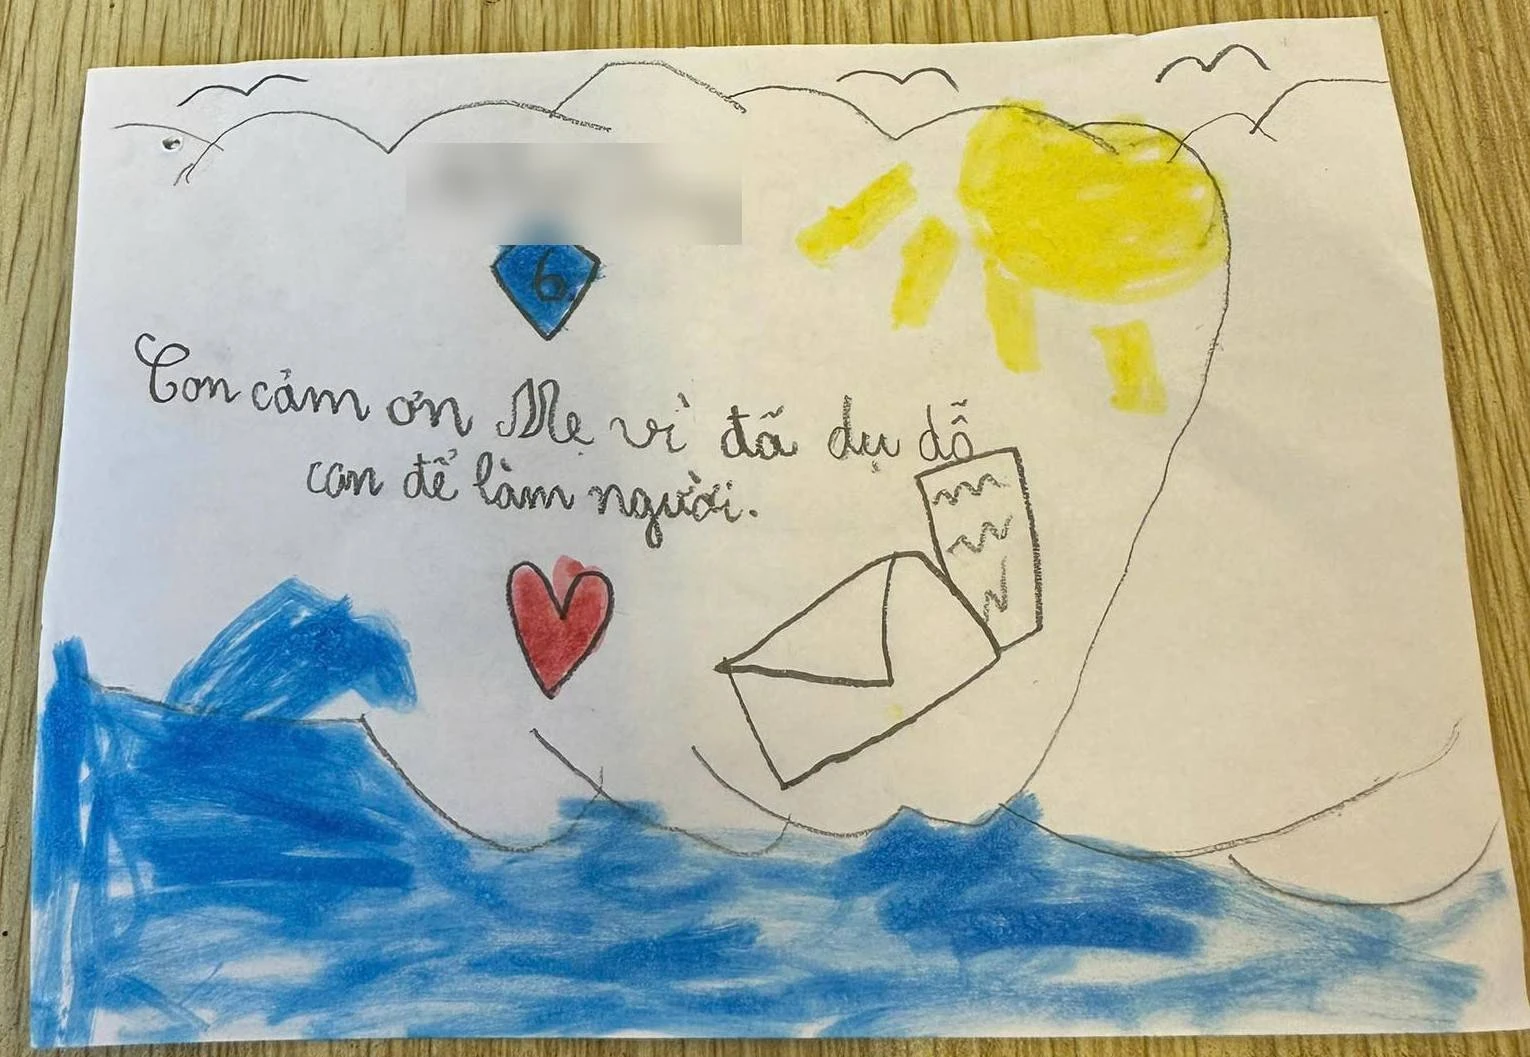 6
Con cảm ơn Mẹ vì đã dụ dỗ
con để làm người.